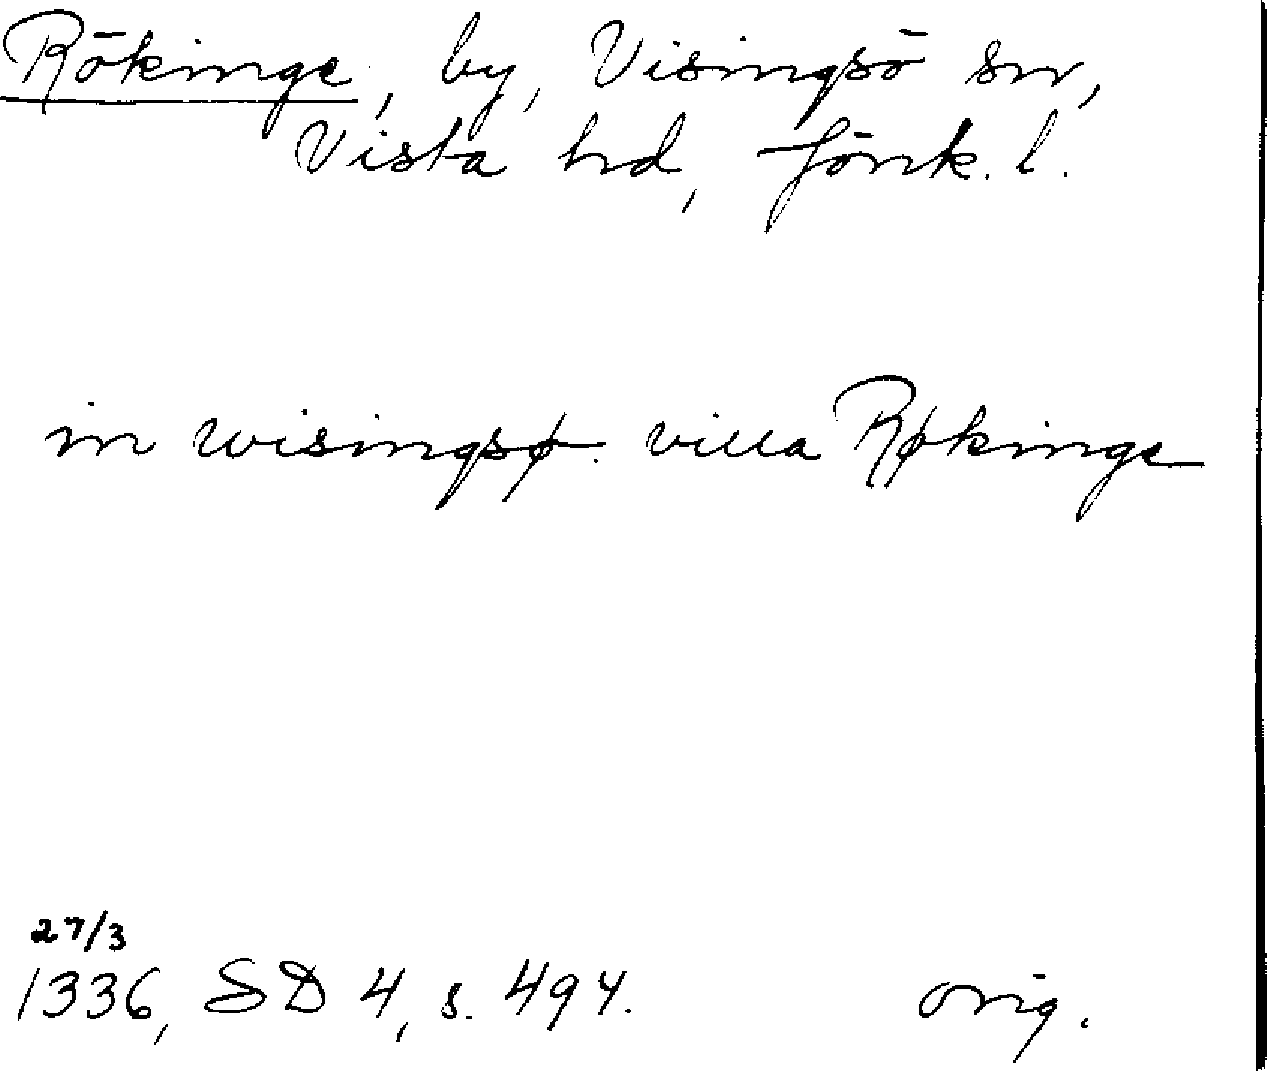 Rökinge, by, Visingsö sn,
Vista hd, Jönk. l.
in wisingsø. villa Røkinge
27/3
1336, SD 4, s. 494. orig.